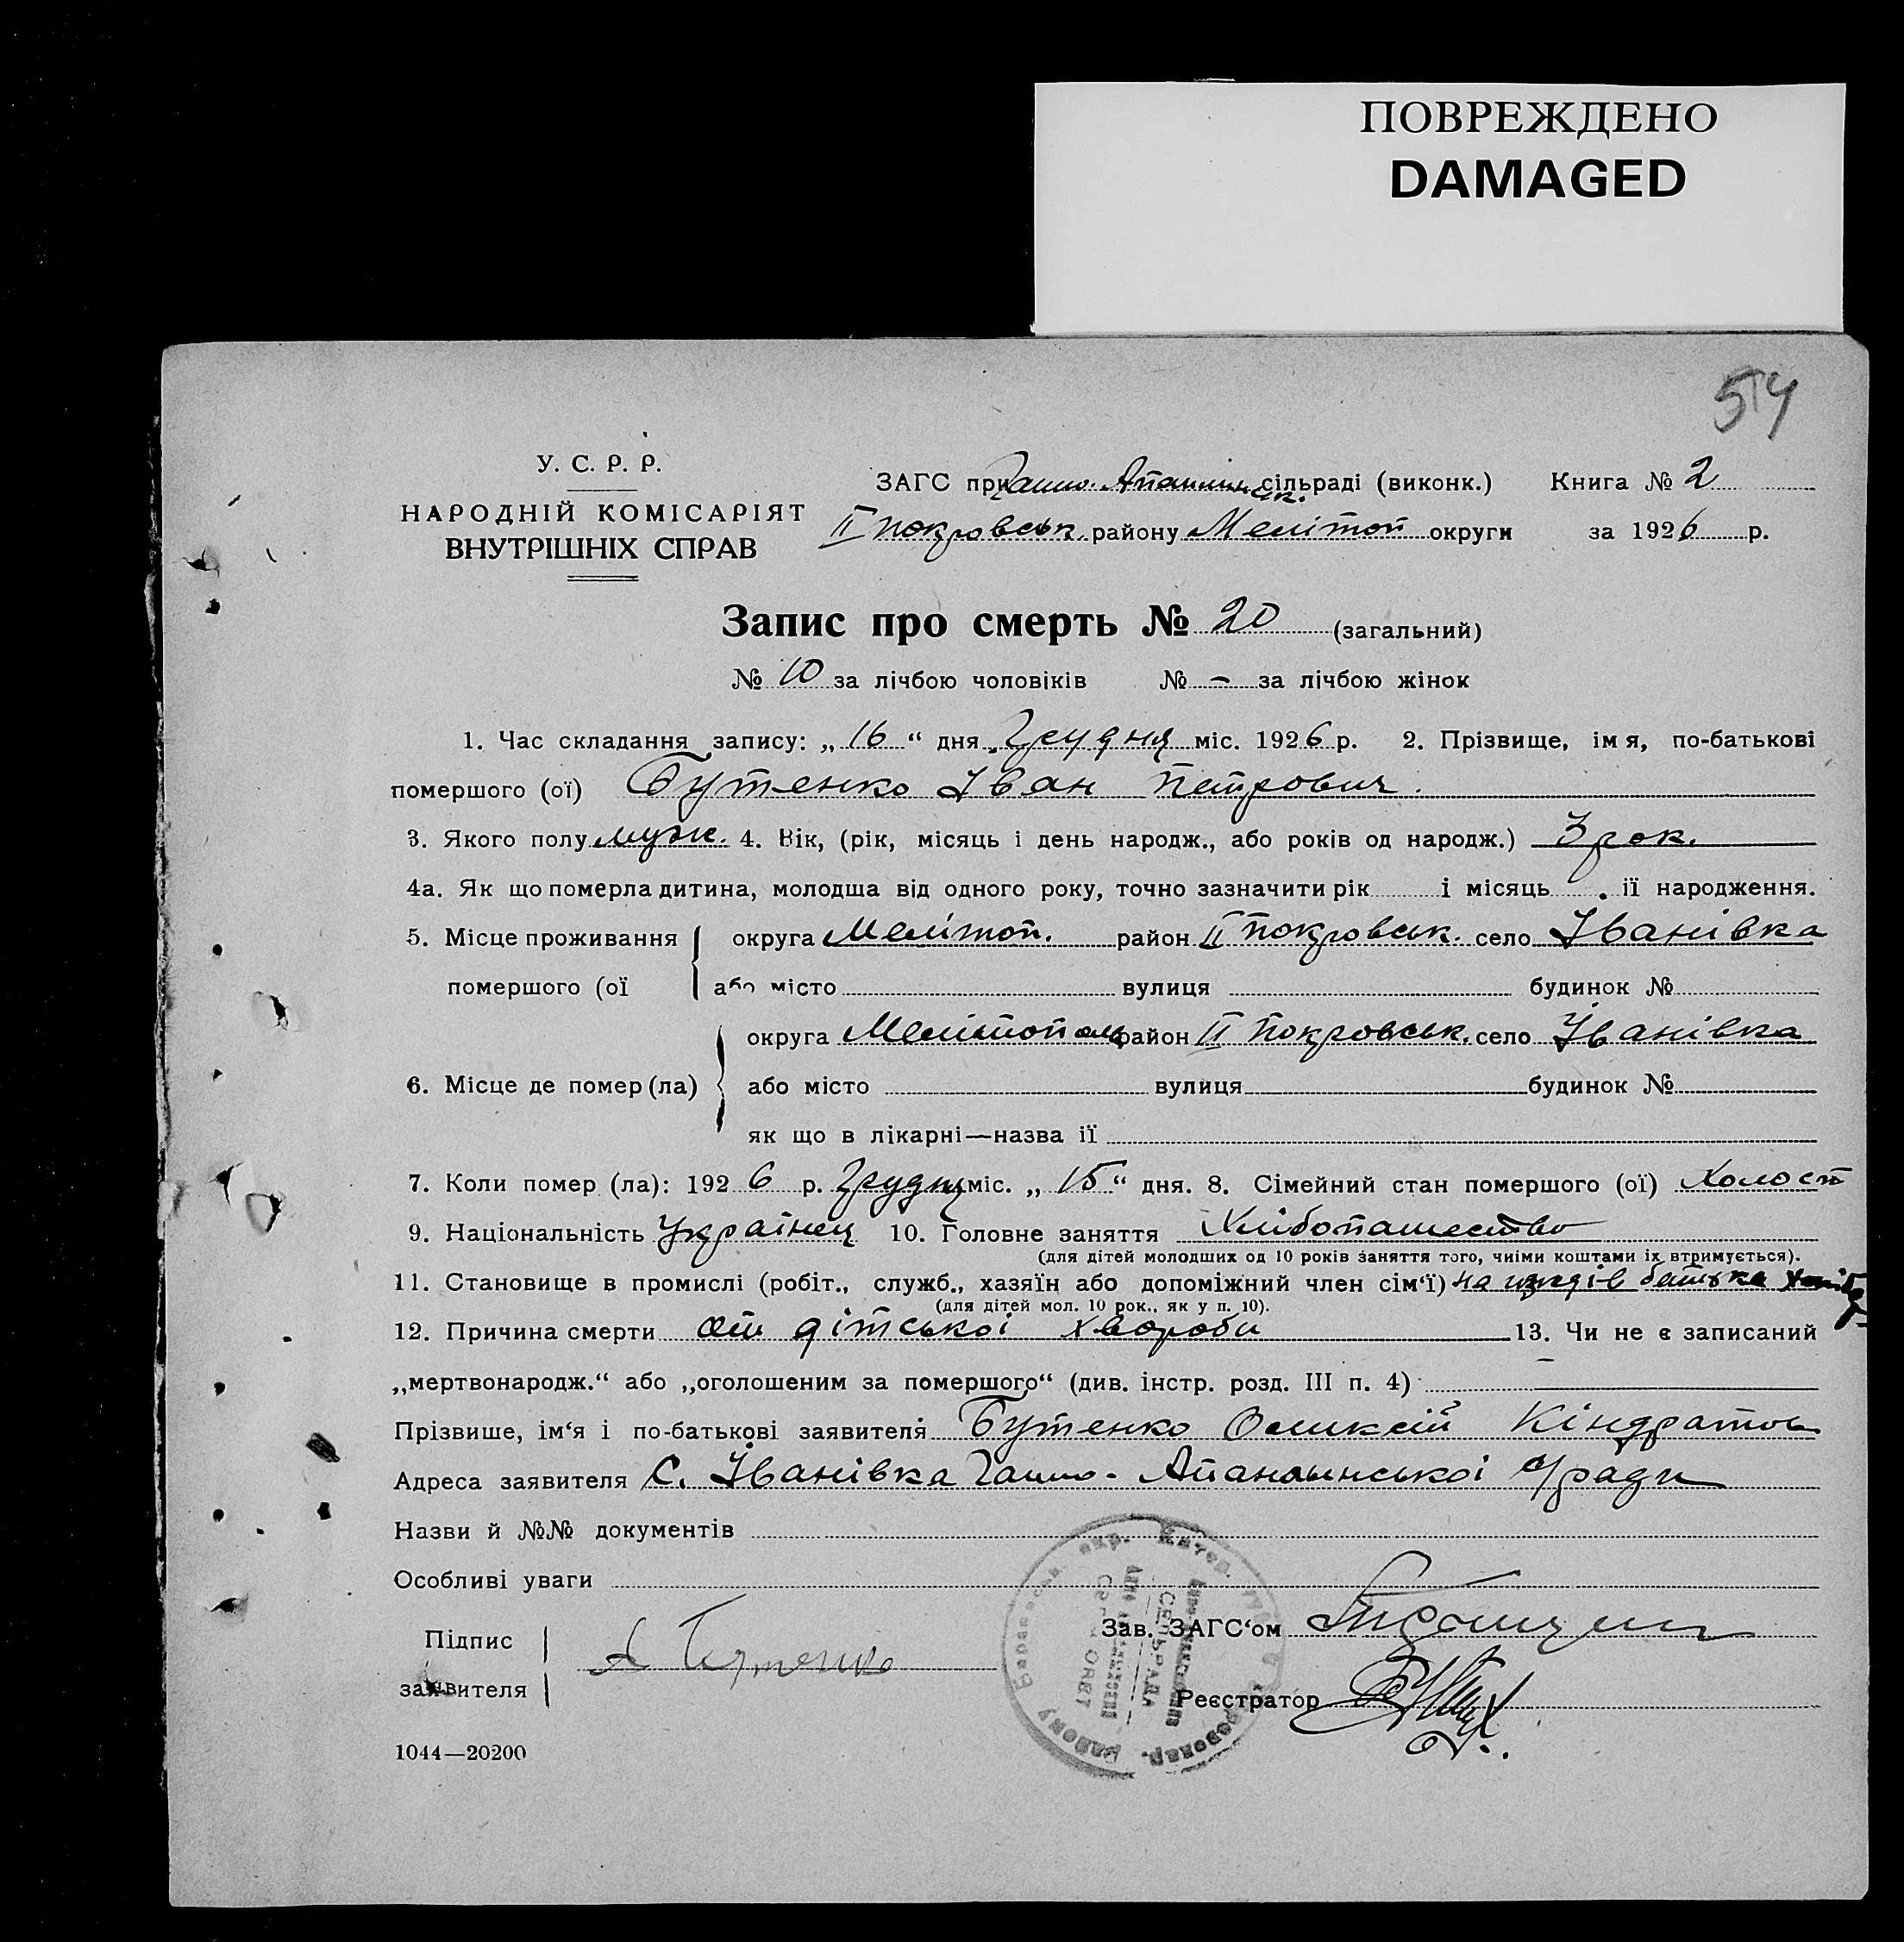 ПОВРЕЖДЕНО
DAMAGED
54
У. С. Р. Р.
НАРОДНІЙ КОМІСАРІЯТ
ВНУТРІШНІХ СПРАВ
ЗАГС при сільраді (виконк.) Книга № 2
II Покровськ. району Мелітоп округи за 1926 р.
Запис про смерть № 20 (загальний)
№ 10 за лічбою чоловіків № – за лічбою жінок
1. Час складання запису: „ 16 “ дня Грудня міс. 1926 р. 2. Прізвище, імя, по-батькові
помершого (ої) Бутенко Іван Петрович.
3. Якого полу муж. 4. Вік, (рік, місяць і день народж., або років од народж.) 3 рок.
4а. Як що померла дитина, молодша від одного року, точно зазначити рік і місяць її народження.
5. Місце проживання округа Мелітоп. район II Покровськ. село Іванівка
помершого (ої або місто вулиця будинок №
округа Мелітополь район II Покровськ. село Іванівка
6. Місце де помер (ла) або місто вулиця будинок №
як що в лікарні—назва її
7. Коли помер (ла): 1926 р. Грудня міс. „ 15 “ дня. 8. Сімейний стан помершого (ої) холост
9. Національність Українец 10. Головне заняття Хлібопашество
(для дітей молодших од 10 років заняття того, чиїми коштами їх втримується).
11. Становище в промислі (робіт., служб., хазяїн або допоміжний член сім‘ї) на іждів батька
(для дітей мол. 10 рок., як у п. 10).
12. Причина смерти от дітської хвороби 13. Чи не є записаний
„мертвонародж.“ або „оголошеним за помершого“ (див. інстр. розд. III п. 4) –
Прізвише, ім‘я і по-батькові заявителя Бутенко Оликсій Кіндратов
Адреса заявителя С. Іванівка Ганно-Апанлинської с/ради
Назви й №№ документів
Особливі уваги
Підпис
заявителя А Бутенко
Зав. ЗАГС‘ом
Реєстратор
СЕЛЬРАДА
1044—20200